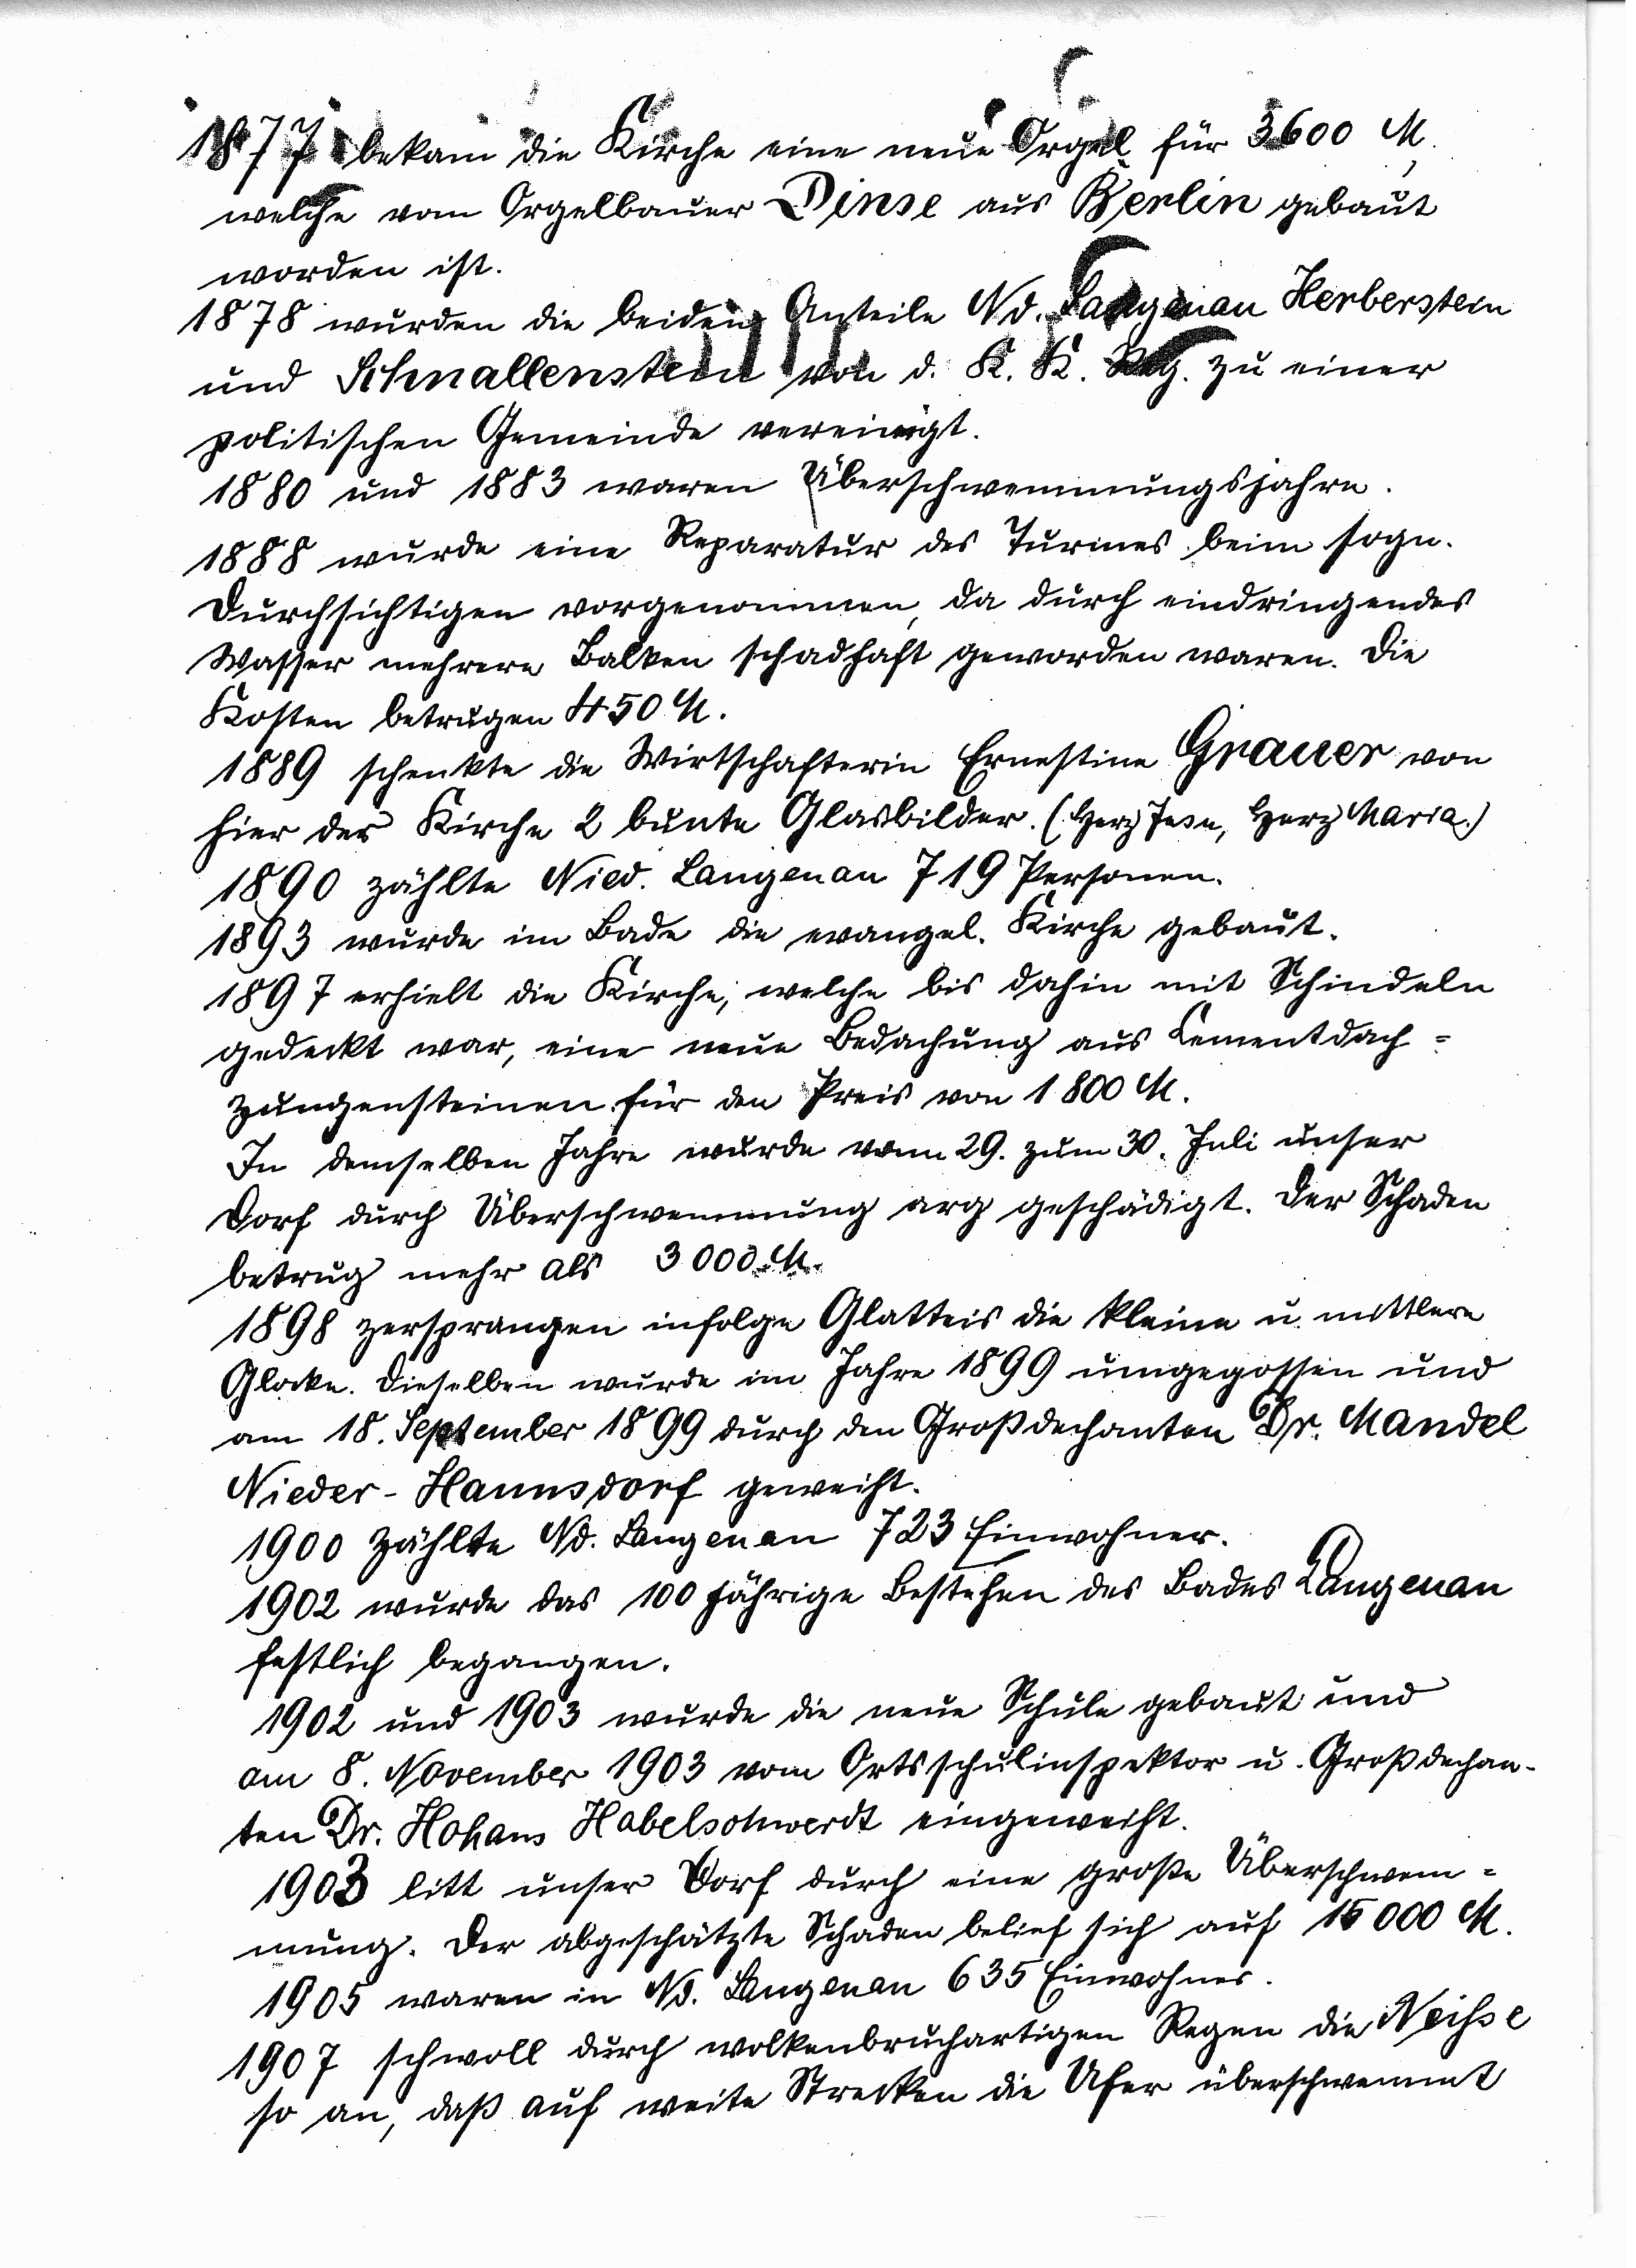 1877 bekam die Kirche eine neue Orgel für 3600 M,
welche vom Orgelbauer Dinse aus Berlin gebaut
worden ist.
1878 wurden die beiden Anteile Nd. Langenau Herberstein
und Schnallenstein von d. K. K. Reg. zu einer
politischen Gemeinde vereinigt.
1880 und 1883 waren Überschwemmungsjahre.
1888 wurde eine Reparatur des Turmes beim sogn.
Durchsichtigen vorgenommen, da durch eindringendes
Wasser mehrere Balken schadhaft geworden waren. Die
Kosten betrugen 450 M.
1889 schenkte die Wirtschafterin Ernestine Grauer von
hier der Kirche 2 bunte Glasbilder. (Herz Jesu, Herz Maria.)
1890 zählte Nied. Langenau 719 Personen.
1893 wurde im Bade die evangel. Kirche gebaut.
1897 erhielt die Kirche, welche bis dahin mit Schindeln
gedeckt war, eine neue Bedachung aus Cementdach=
zungensteinen für den Preis von 1800 M.
In demselben Jahre wurde vom 29. zum 30. Juli unser
Dorf durch Überschwemmung arg geschädigt. Der Schaden
betrug mehr als 3000 M.
1898 zersprangen infolge Glatteis die kleine u. mittlere
Glocke. Dieselben wurde im Jahre 1899 umgegossen und
am 18. September 1899 durch den Großdechanten Dr. Mandel
Nieder-Hannsdorf geweiht.
1900 zählte Nd. Langenau 723 Einwohner.
1902 wurde das 100 jährige Bestehen des Bades Langenau
festlich begangen.
1902 und 1903 wurde die neue Schule gebaut und
am 8. November 1903 vom Ortsschulinspektor u. Großdechan-
ten Dr. Hohaus Habelschwerdt eingeweiht.
1903 litt unser Dorf durch eine große Überschwem=
mung. Der abgeschätzte Schaden belief sich auf 15000 M.
1905 waren in Nd. Langenau 635 Einwohner.
1907 schwoll durch wolkenbruchartigen Regen die Neisse
so an, daß auf weite Strecken die Ufer überschwemmt